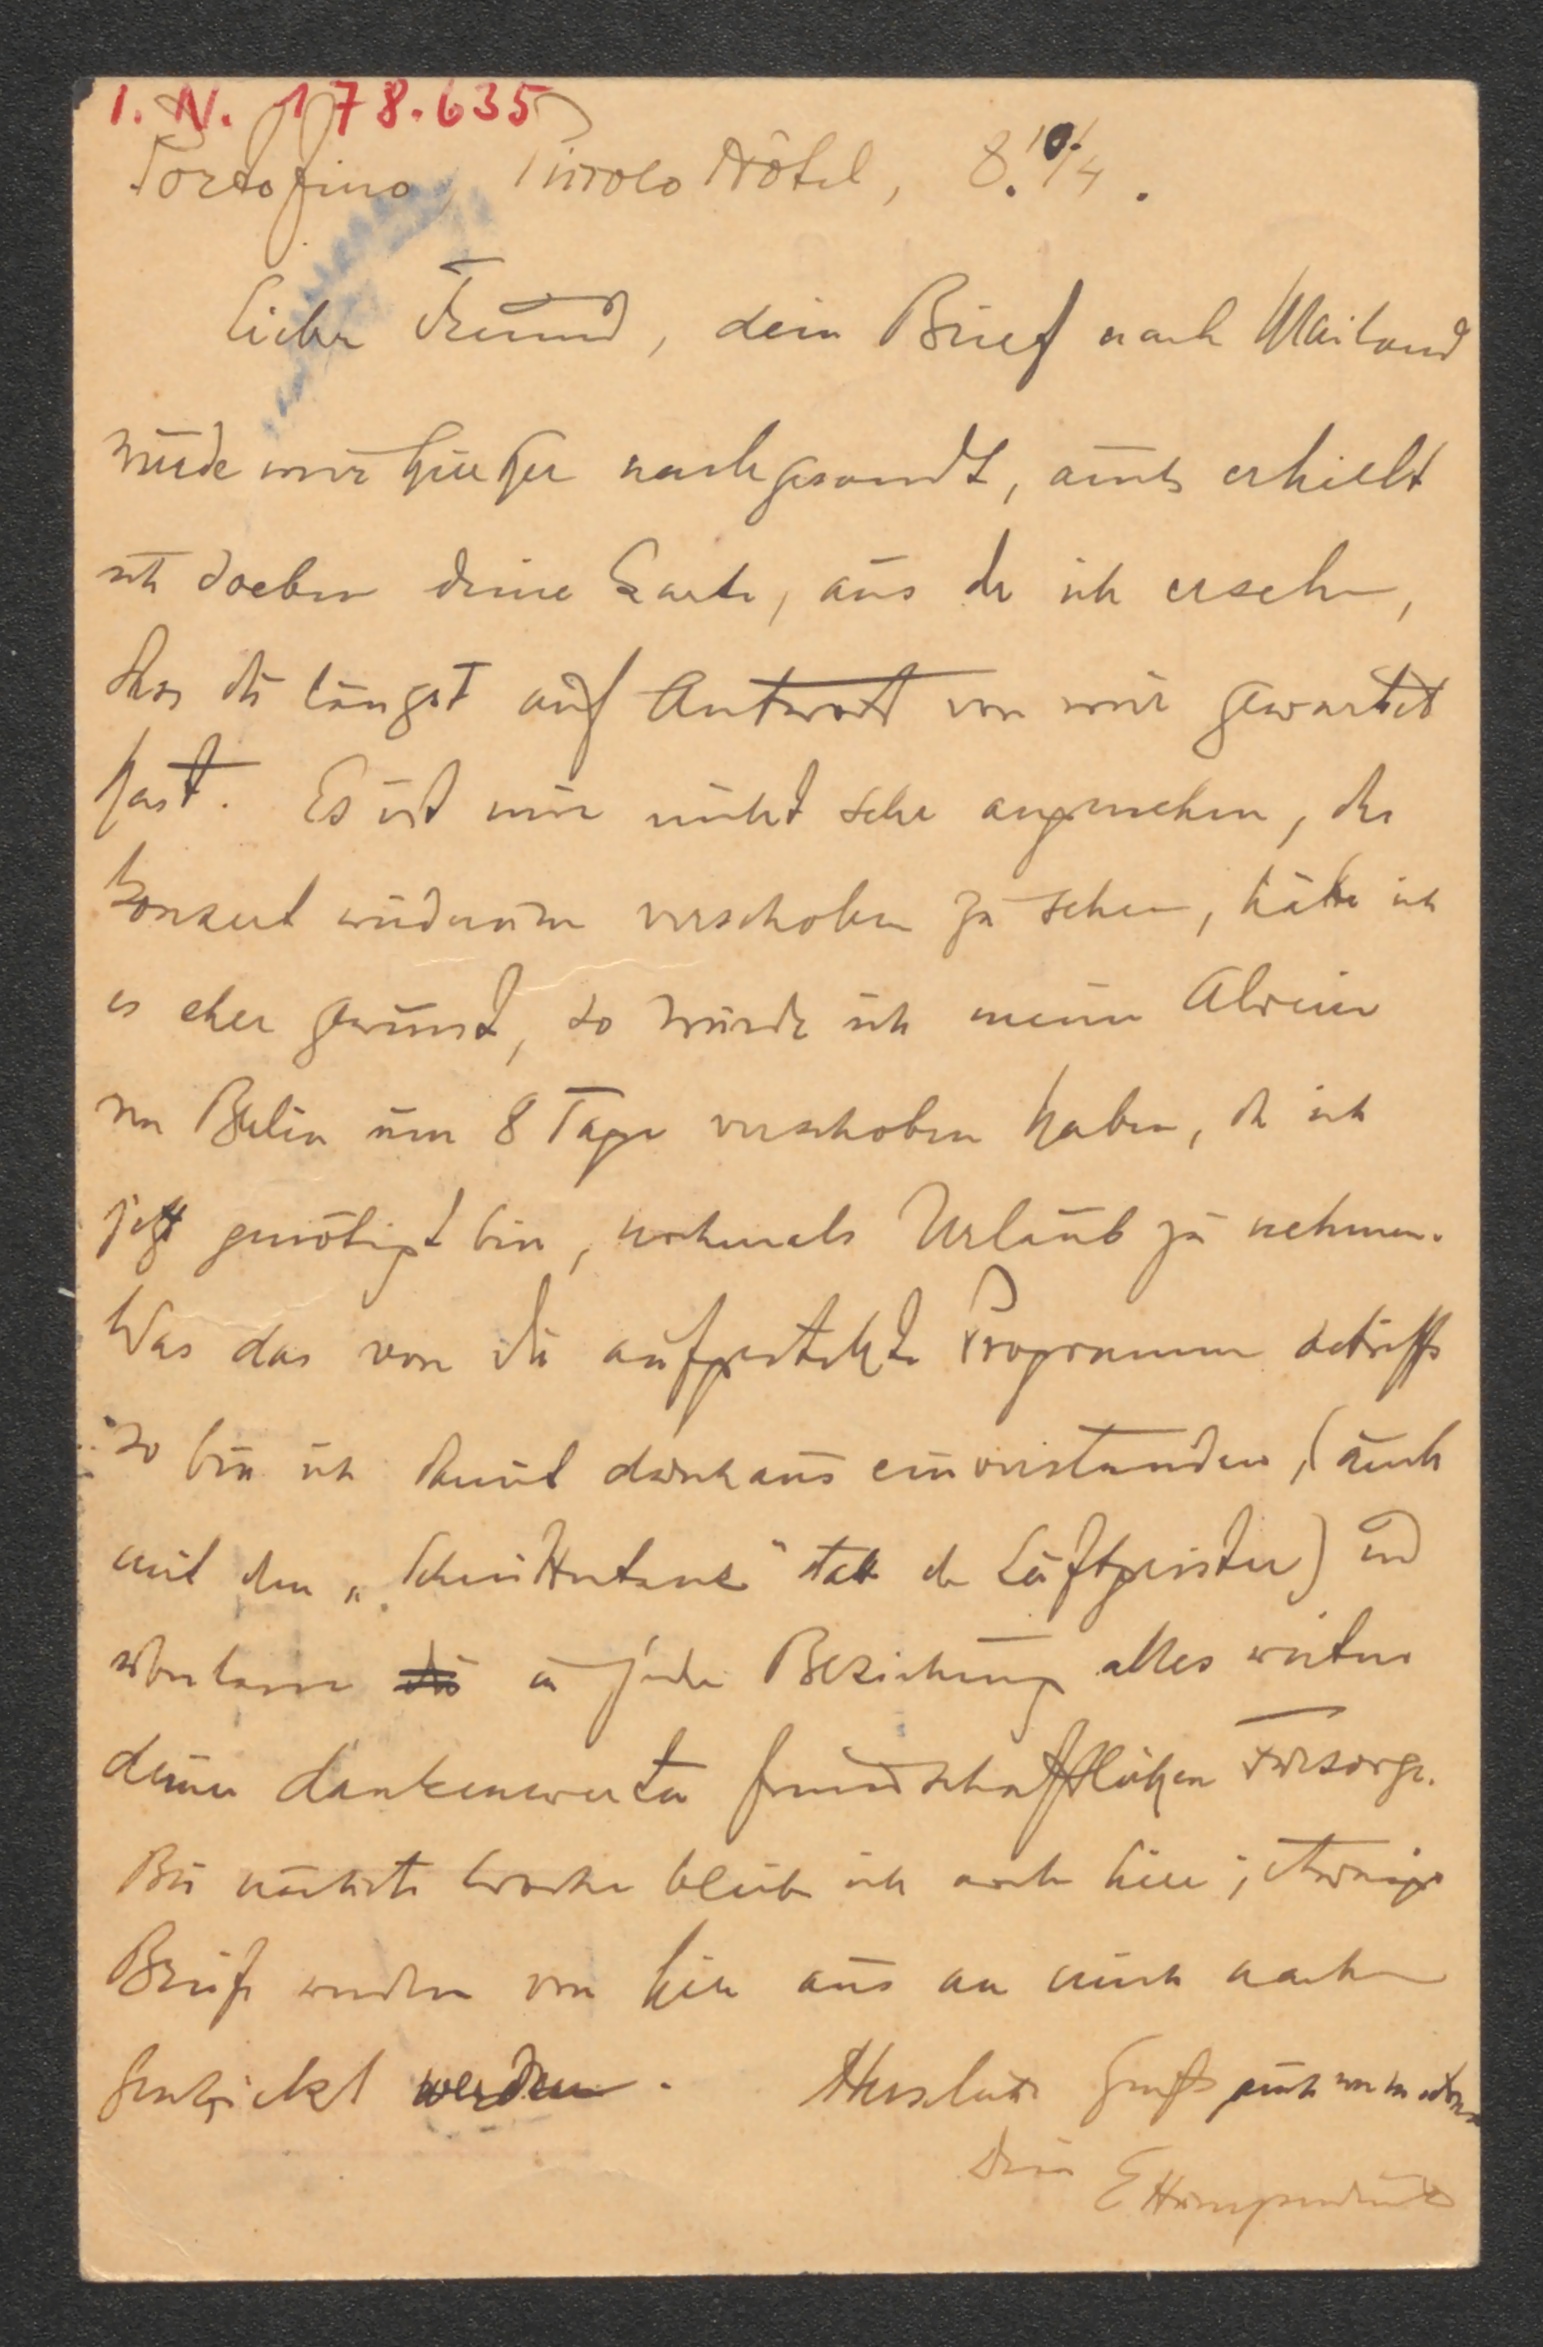 I. N. 178.635
Portofino, Piccolo Hôtel, 8./4.
Lieber Freund, dein Brief nach Mailand
wurde mir hierher nachgesandt, auch erhielt
ich soeben deine Karte, aus der ich ersehe,
dass du längst auf Antwort von mir gewartet
hast. Es ist mir nicht sehr angenehm, das
Konzert wiederum verschoben zu sehen, hätte ich
es eher gewusst, so würde ich meine Abreise
von Berlin um 8 Tage verschoben haben, da ich
jetzt genötigt bin, nochmals Urlaub zu nehmen.
Was das von dir aufgestellte Programm betrifft
so bin ich damit durchaus einverstanden, (auch
mit dem „Schnittertanz" statt der Luftgeister) und
überlasse in jeder Beziehung alles weitere
deiner dankenswerten freundschaftlichen Fürsorge.
Bis nächste Woche bleibe ich noch hier; etwaige
Briefe werden von hier aus an mich nach
geschickt werden. Herzlichste Grüße auch von
Dein EHumperdinck